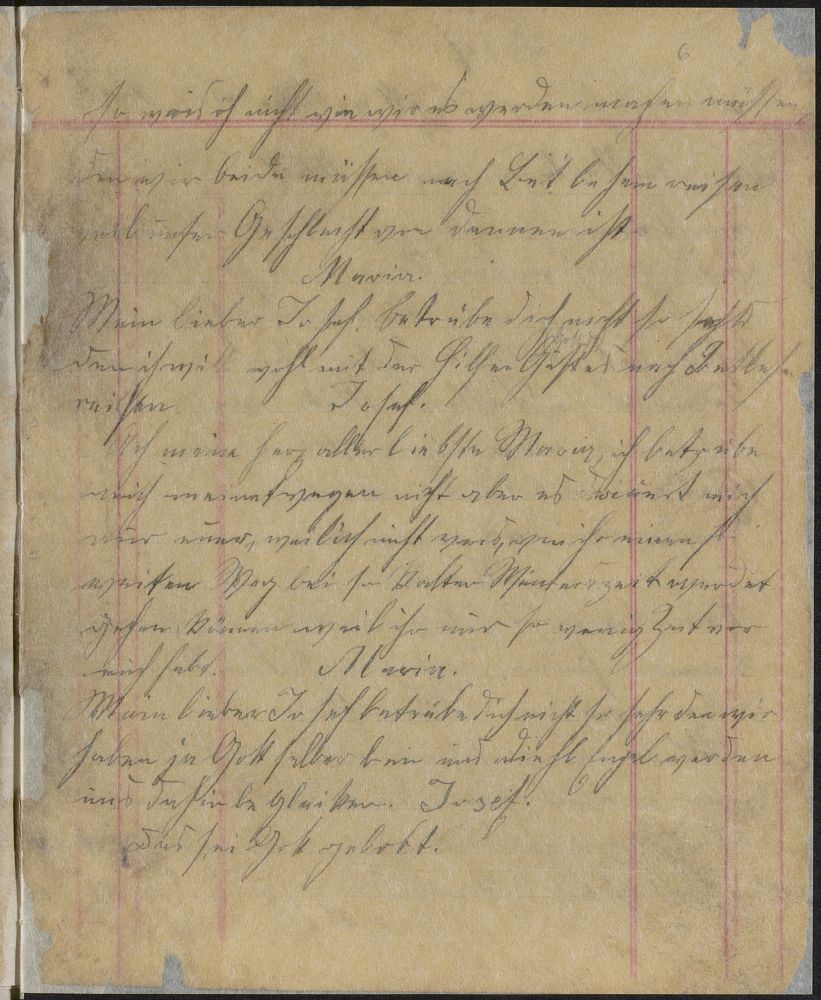 6
so weis ich nicht wie wir es werden machen müssen,
den wir beide müssen nach Bet lehem reisen
weil unser Geschlecht von dannen ist
Maria.
Mein lieber Josef, betrübe dich nicht so sehr
den ich will wohl mit der Hilfe Gottes nach Bethlehem
reisen. Josef.
Ach meine herz allerliebste Maria, ich betrübe
mich meinetwegen nicht aber es dauert mich
nur euer, weil ich nicht weis, wie ihr einen so
weiten Weg bei so kalter Winterszeit werdet
gehen können weil ihr nur so wenig Zeit vor
euch habt. Maria.
Mein lieber Josef betrübe dich nicht so sehr den wir
haben ja Gott selber bei und die hl Engel werden
uns dahin begleiten. Josef.
Das sei Gott gelobt.